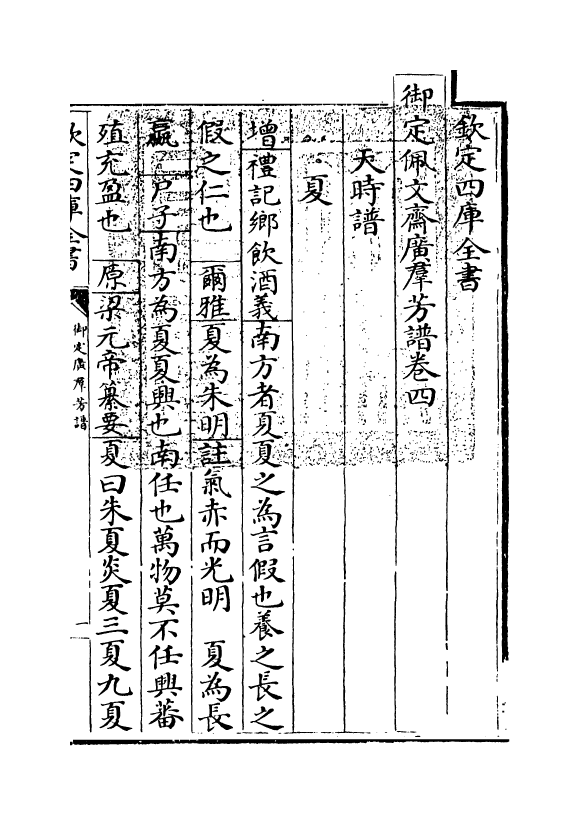 欽定四庫全書
御定佩文齋廣羣芳譜卷四
天時譜
夏
增禮記鄉飲酒義南方者夏夏之為言假也養之長之
假之仁也　爾雅夏為朱明註氣赤而光明　夏為長
嬴　尸子南方為夏夏興也南任也萬物莫不任興蕃
殖充盈也　原梁元帝纂要夏曰朱夏炎夏三夏九夏
欽定四庫全書　御定廣羣芳譜　一